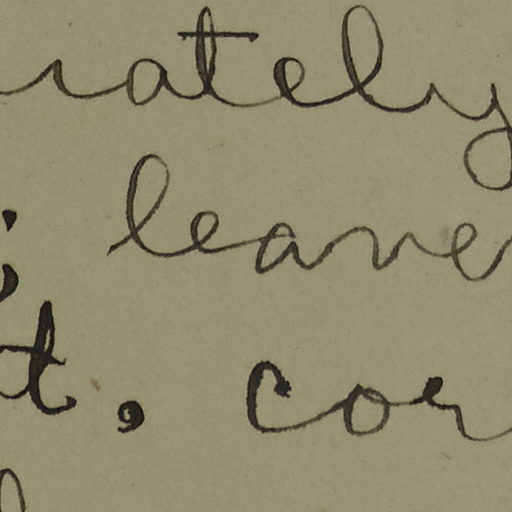 rately
; leave
t, cor